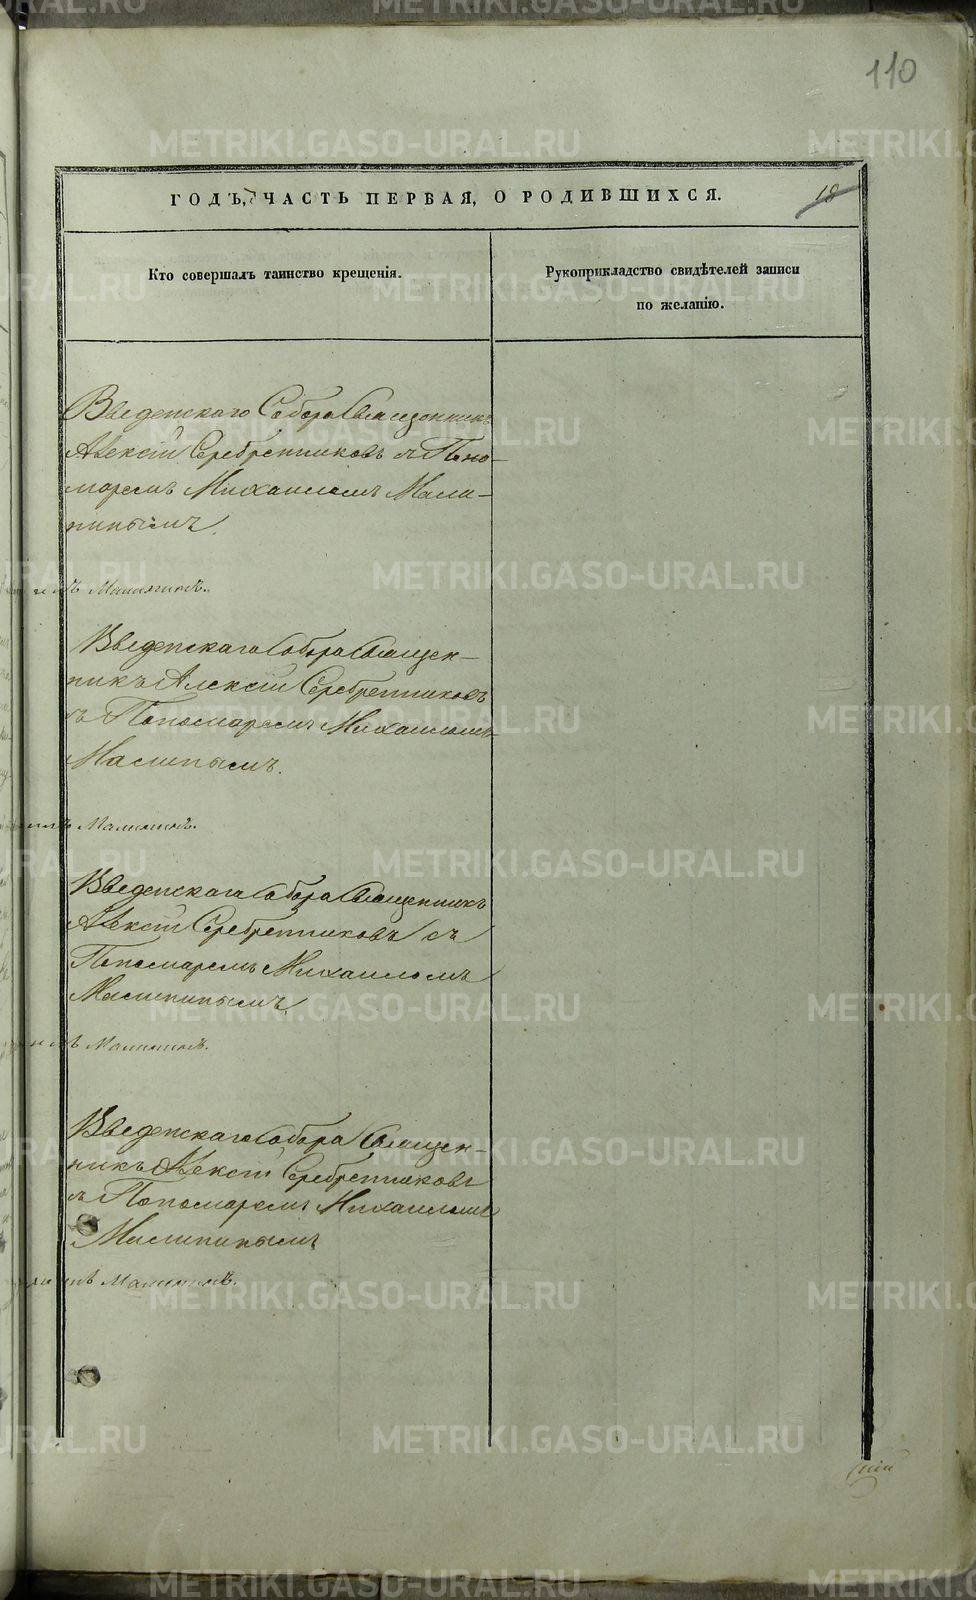 110
ГОДЪ, ЧАСТЬ ПЕРВАЯ, О РОДИВШИХСЯ.
18
Кто совершалъ таинство крещенія.
Рукоприкладство свидѣтелей записи
по желанію.
Введенскаго Собора Священникъ
Алексій Серебренниковъ съ Поно-
маремъ Михаиломъ Мали-
нинымъ.
Малининъ.
Введенскаго Собора Священ-
никъ Алексій Серебренниковъ
съ Пономаремъ Михаиломъ
Малинымъ.
Малининъ.
Введенскаго Собора Священникъ
Алексій Серебренниковъ съ
Пономаремъ Михаиломъ
Малининымъ.
Малининъ.
Введенскаго Собора Священ-
никъ Алексій Серебренниковъ
съ Пономаремъ Михаиломъ
Малининымъ
Малининъ.
METRIKI.GASO-URAL.RU